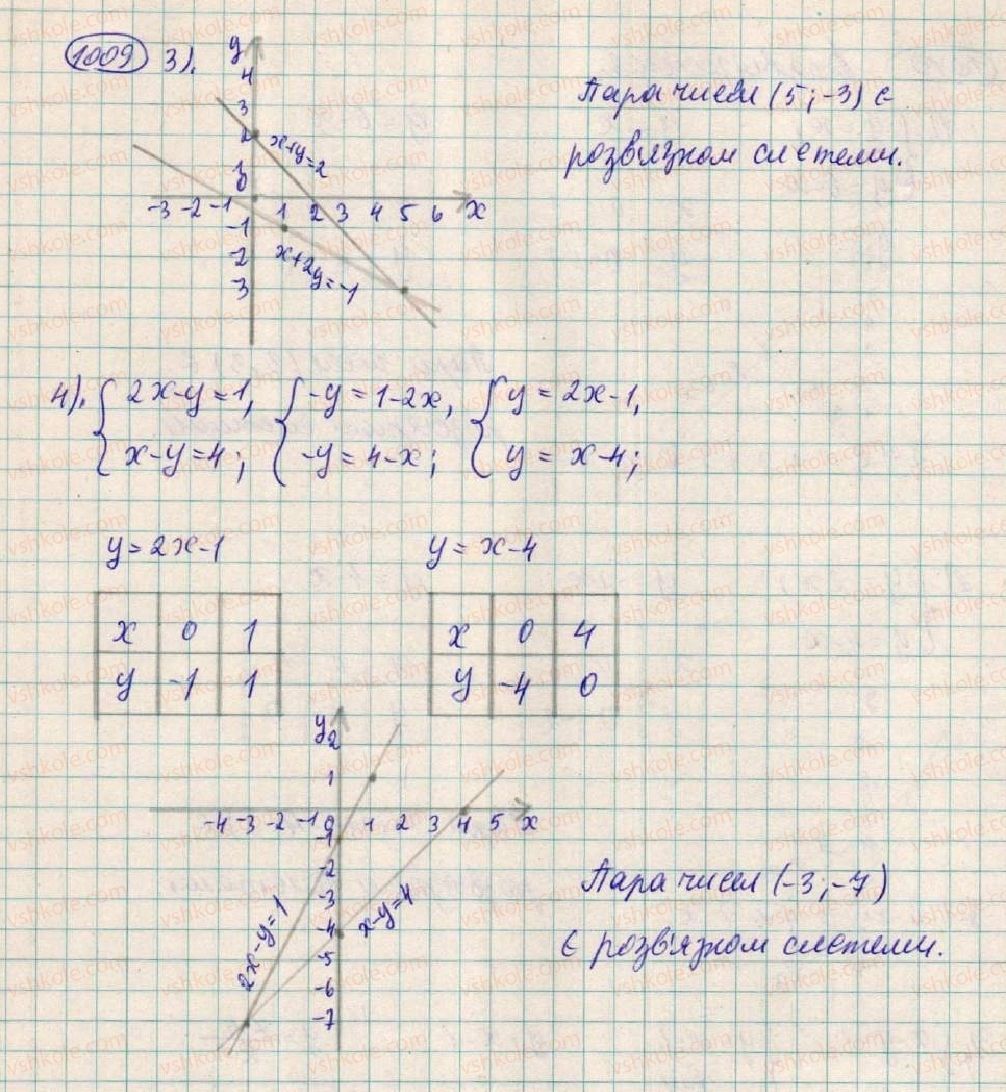 1009 3).
y
4
3
2
1
0
-3 -2 -1 1 2 3 4 5 6 x
-1
-2
-3
x+y=2
x+2y=-1
Пара чисел (5;-3) є
розв'язком системи.
4). { 2x-y=1, { -y=1-2x, { y=2x-1,
x-y=4; -y=4-x; y=x-4;
y=2x-1 y=x-4
x 0 1 x 0 4
y -1 1 y -4 0
y
2
1
-4 -3 -2 -1 0 1 2 3 4 5 x
-1
-2
-3
-4
-5
-6
-7
2x-y=1
x-y=4
Пара чисел (-3;-7)
є розв'язком системи.
vshkole.com